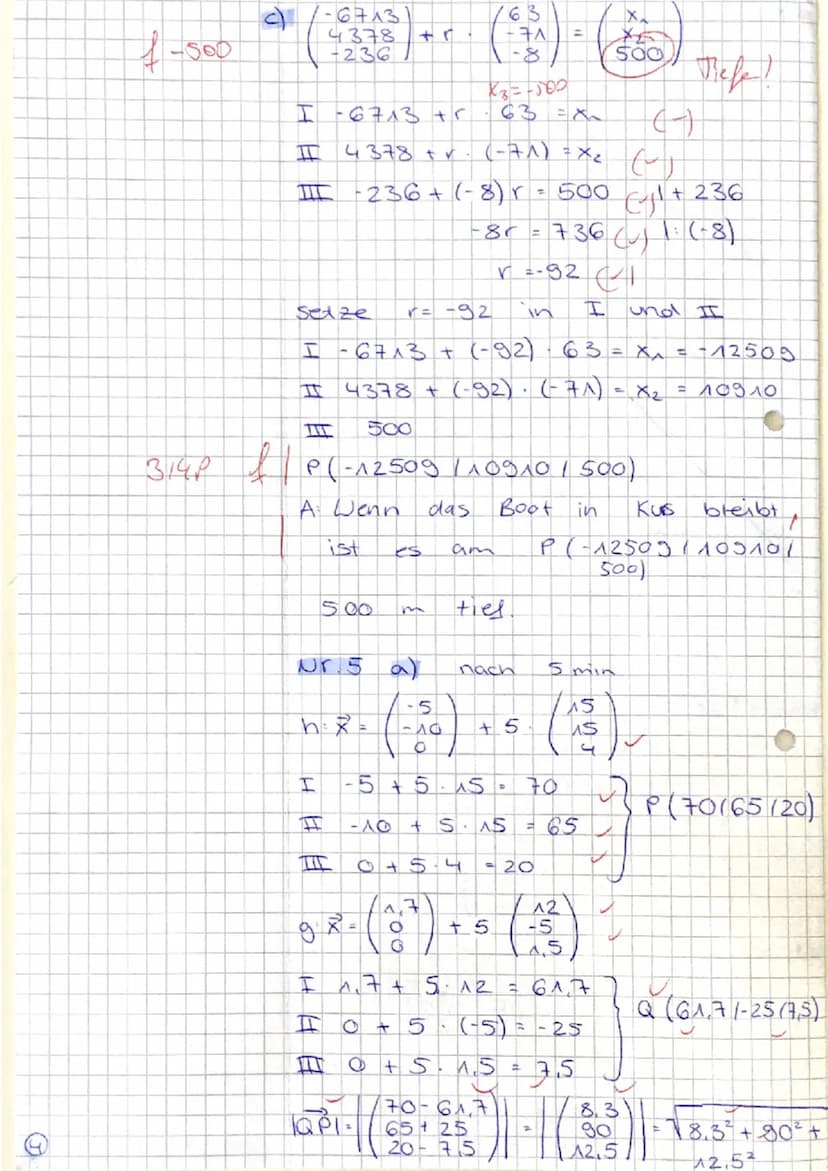 c) (-6713 / 4378 / -236) + r · (63 / -71 / -8) = (x₁ / x₂ / 500)
f -500
Tiefe!
x₃ = -500
I -6713 + r · 63 = x₁ (-)
II 4378 + r · (-71) = x₂ (✓)
III -236 + (-8) r = 500 (✓) | + 236
-8r = 736 (✓) | : (-8)
r = -92 (✓)
setze r = -92 in I und II
I -6713 + (-92) · 63 = x₁ = -12509
II 4378 + (-92) · (-71) = x₂ = 10910
III 500
3/4P f | P(-12509 / 10910 / 500)
A: Wenn das Boot in Kus bleibt,
ist es am P (-12509 / 10910 /
500)
500 m tief.
Nr. 5 a) nach 5 min
h: x⃗ = (-5 / -10 / 0) + 5 · (15 / 15 / 4) ✓
I -5 + 5 · 15 = 70 ✓
II -10 + 5 · 15 = 65 ✓ } P (70/65/20)
III 0 + 5 · 4 = 20 ✓
g: x⃗ = (1,7 / 0 / 0) + 5 (12 / -5 / 1,5) ✓ ✓
I 1,7 + 5 · 12 = 61,7
II 0 + 5 · (-5) = -25 } Q (61,7 / -25 / 7,5)
III 0 + 5 · 1,5 = 7,5
|QP⃗| = |(70 - 61,7 / 65 + 25 / 20 - 7,5)| = |(8,3 / 90 / 12,5)| = √8,3² + 90² +
12,5²
4